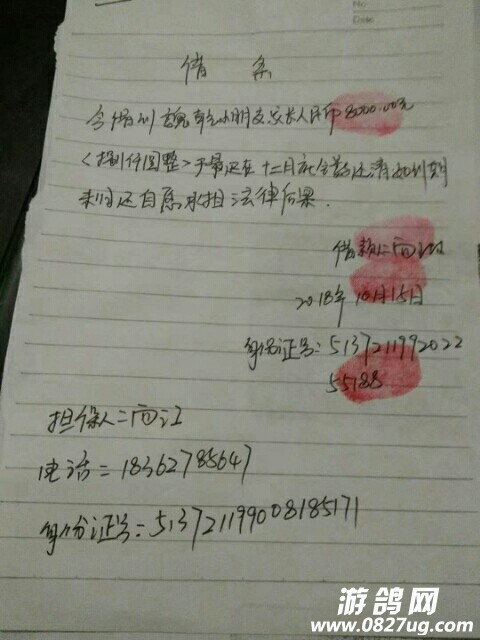 No
Date
借条
今借到 乾小朋友家长人民币8000.00元
〈捌仟圆整〉于最迟在十二月底全数还清如到期
未归还自愿承担法律后果.
借款人:
2018年10月15日
身份证号:5137211992022
55188
担保人:而江
电话:18362785647
身份证号:513721199008185171
游鸽网
www.0827ug.com